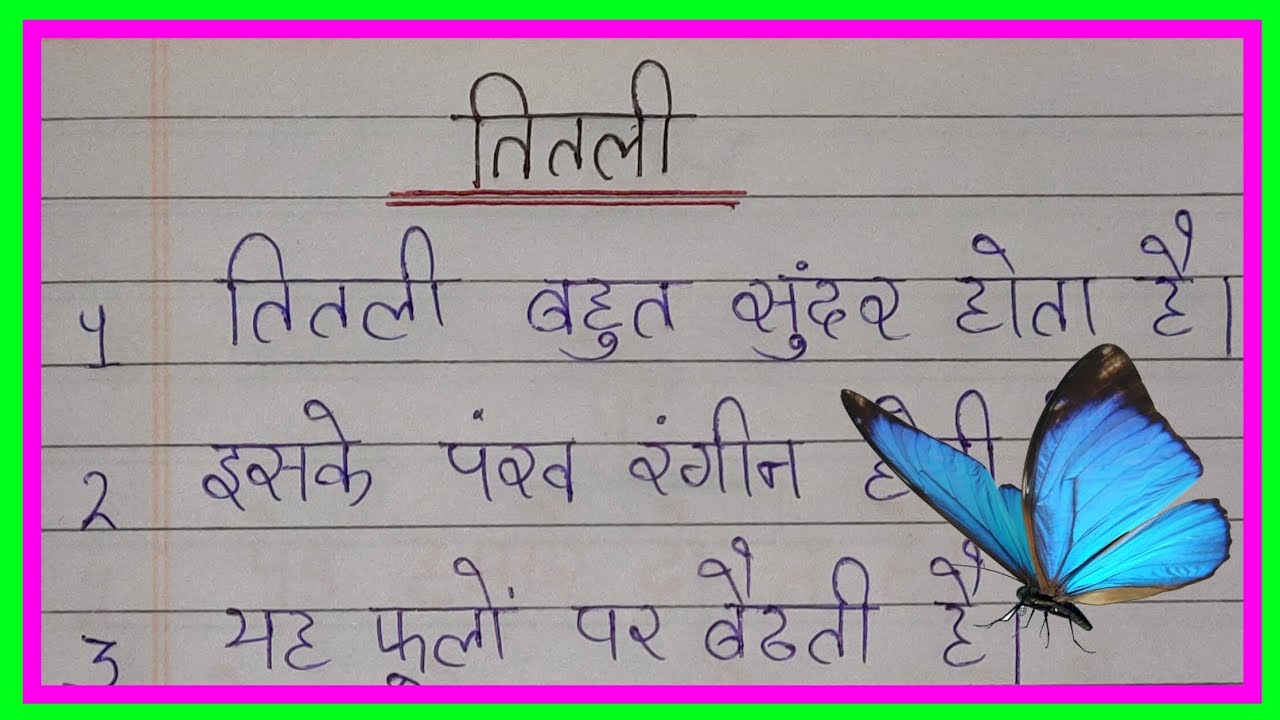 तितली
१ तितली बहुत सुंदर होता है।
२ इसके पंख रंगीन
३ यह फूलों पर बैठती है।